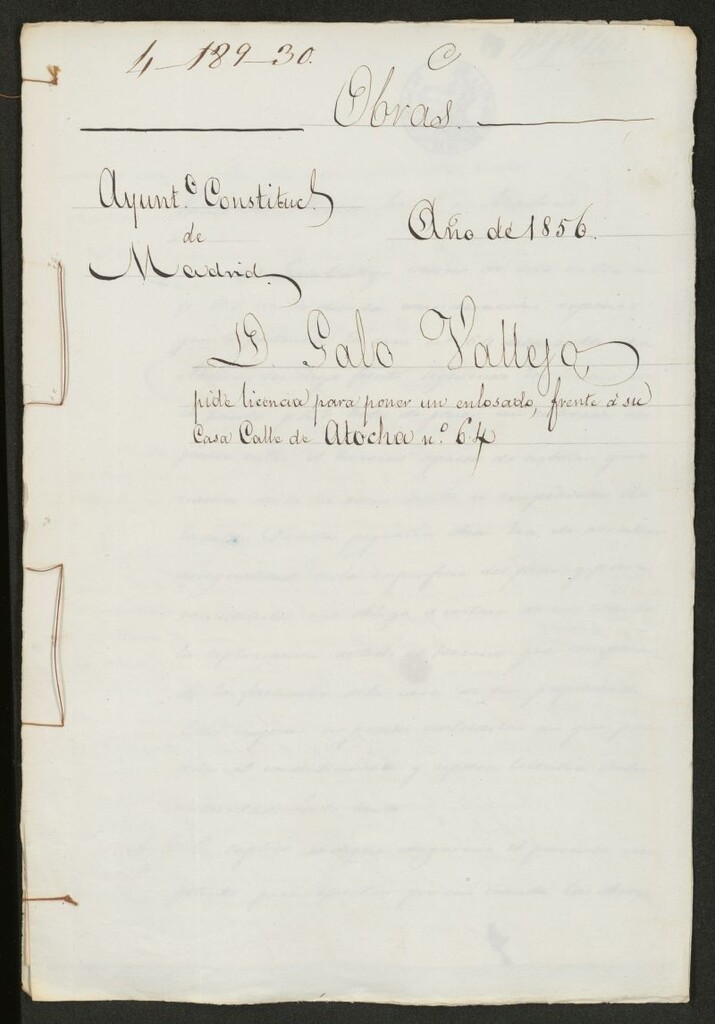 4-189-30.
C
Obras.
Ayunt.º Constitucl.
de
Madrid.
Año de 1856.
D. Galo Vallejo,
pide licencia para poner un enlosado, frente á su
Casa Calle de Atocha nº 64